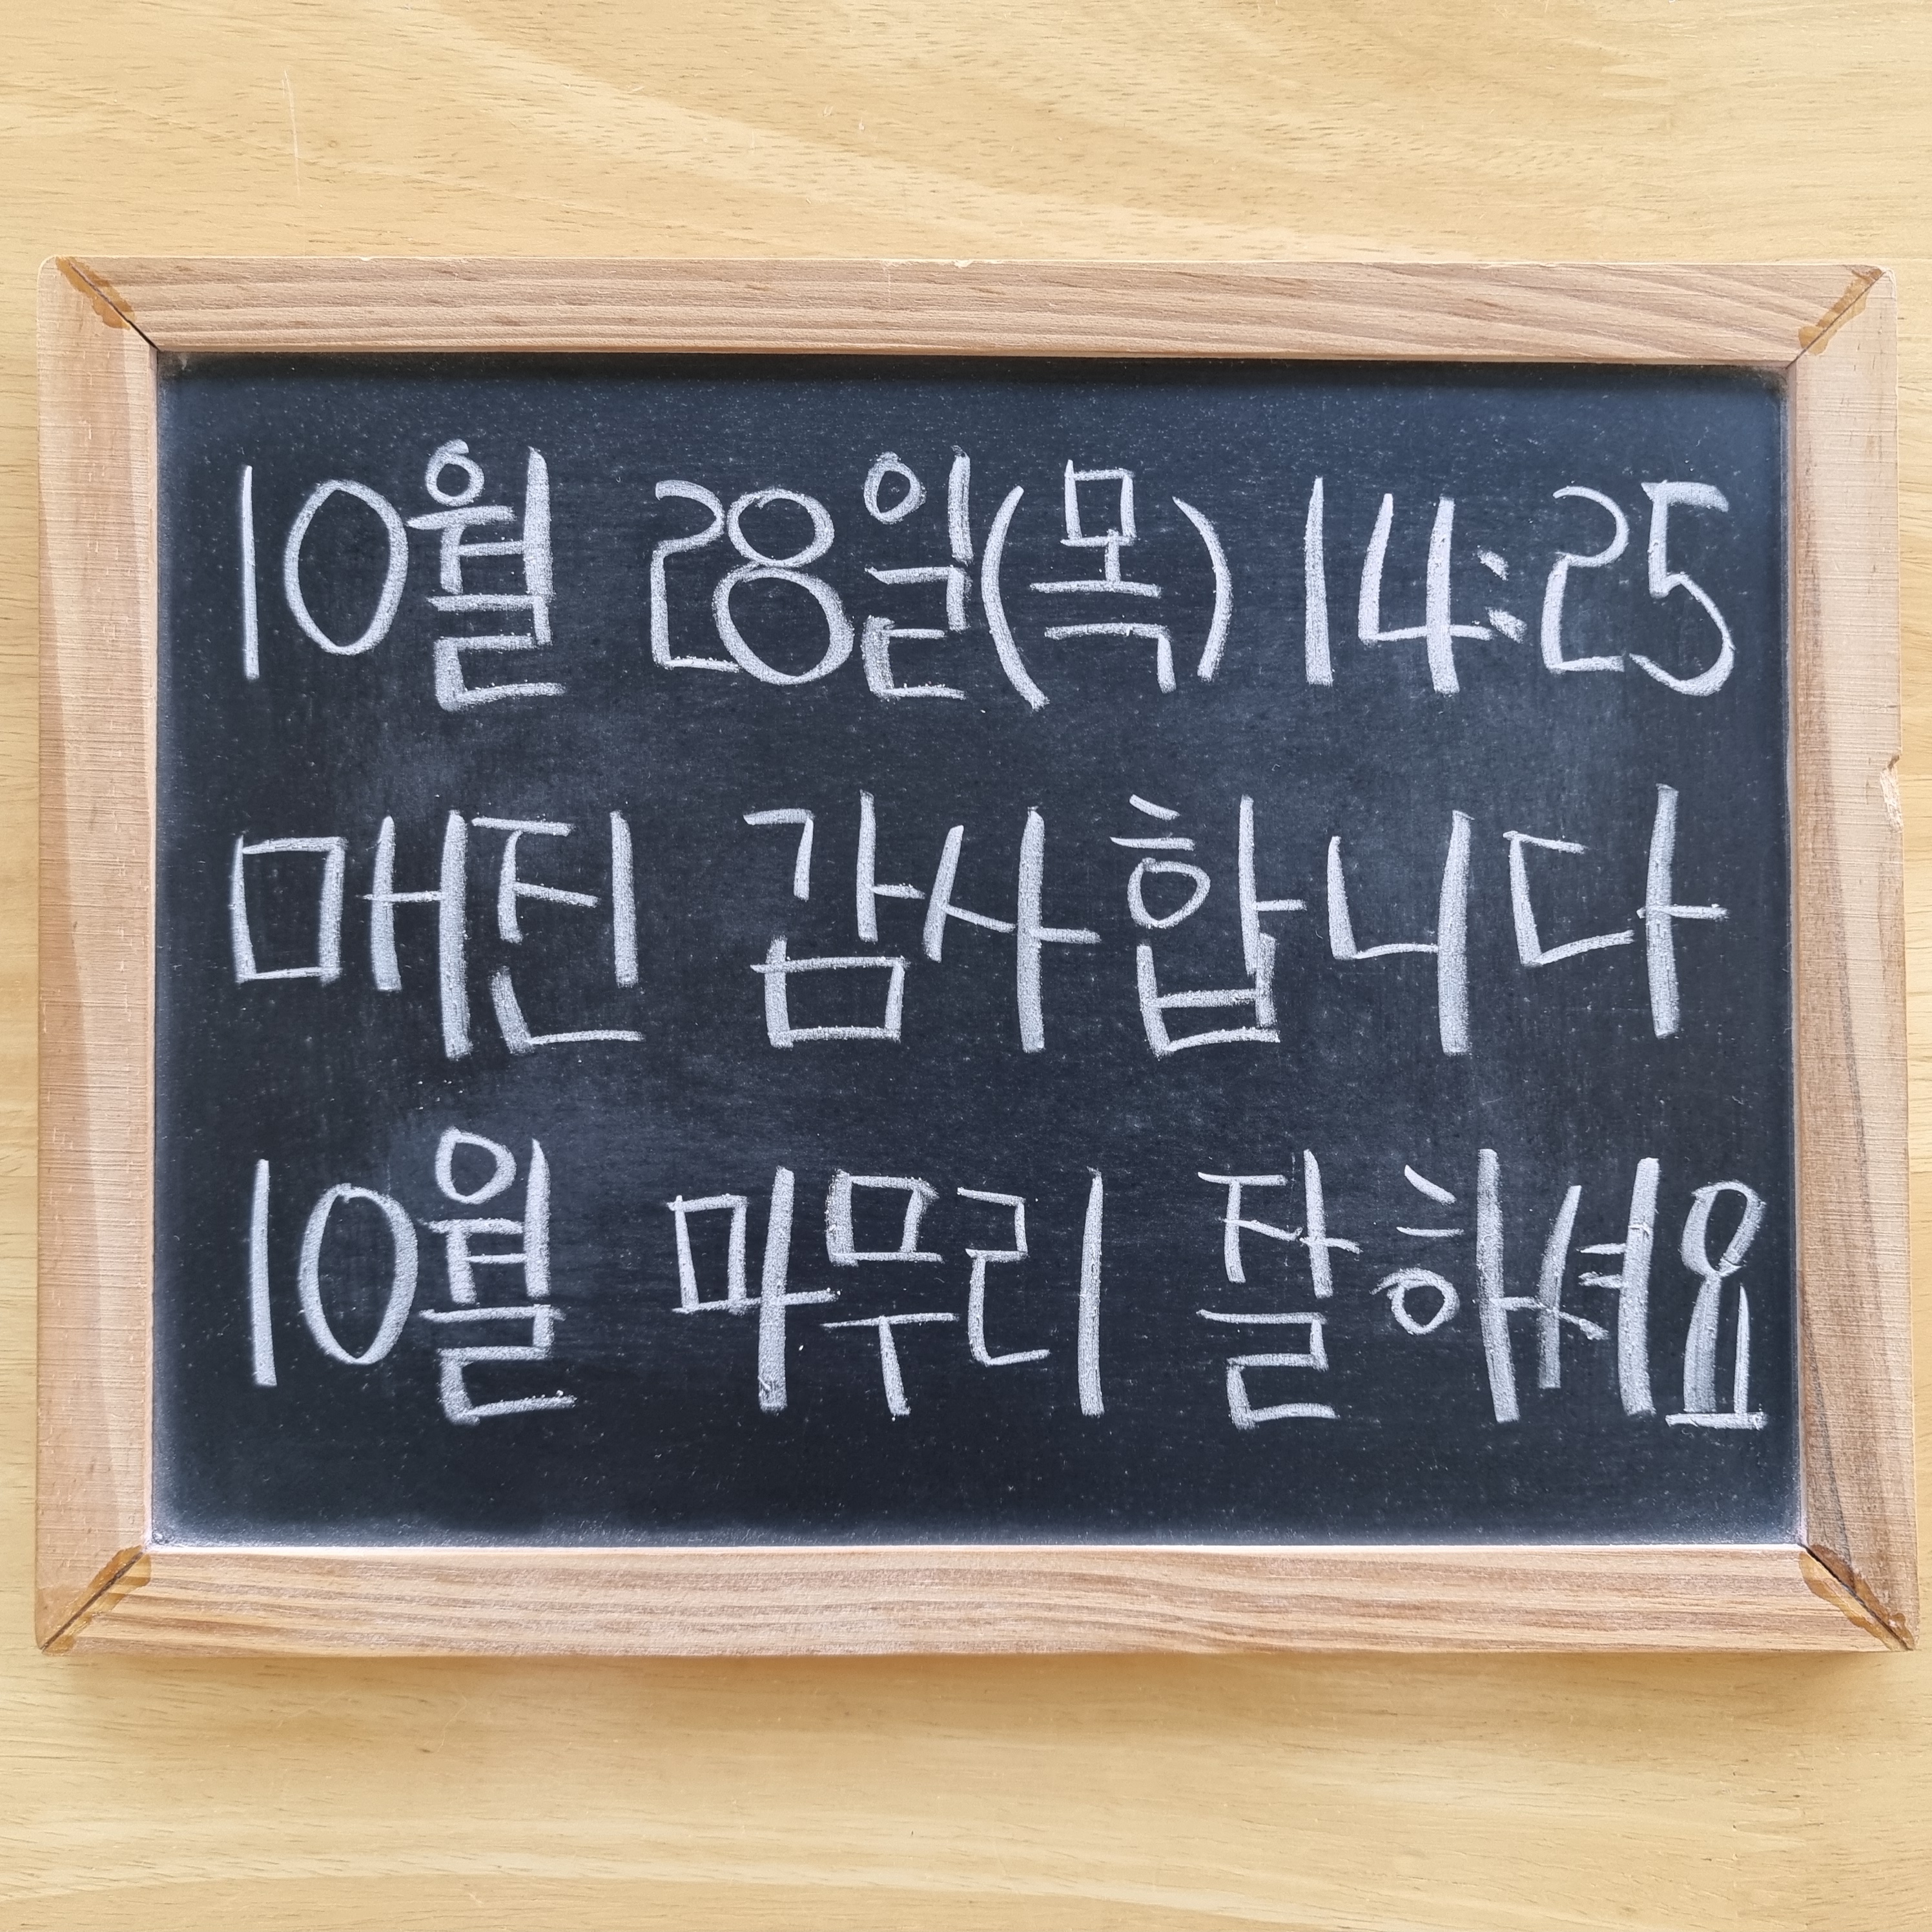 10월 28일(목) 14:25
매진 감사합니다
10월 마무리 잘하셔요